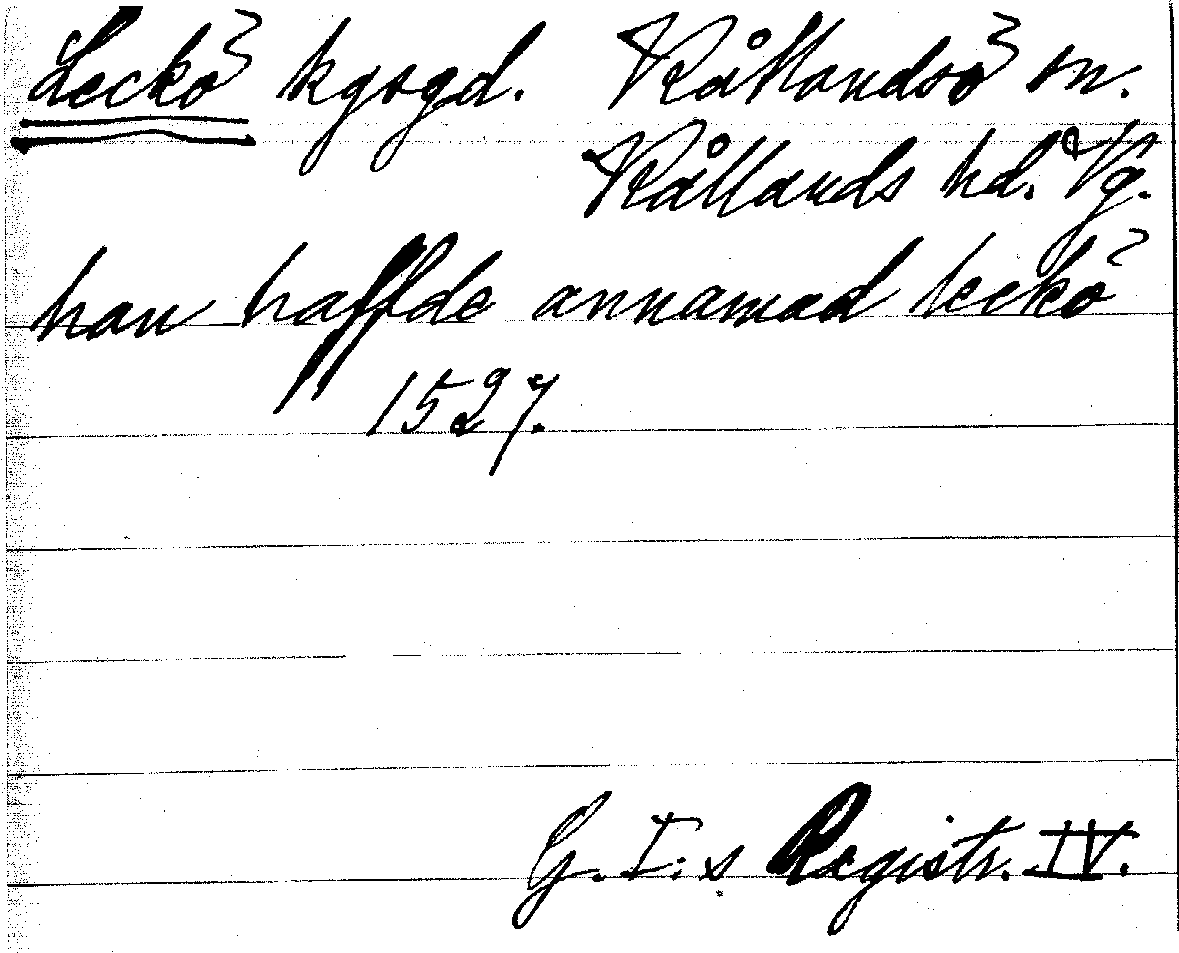 Leckö kgsgd. Kållandsö sn.
Kållands hd. Vg.
han haffde annamad leckö
1527.
G. I:s Registr. IV.